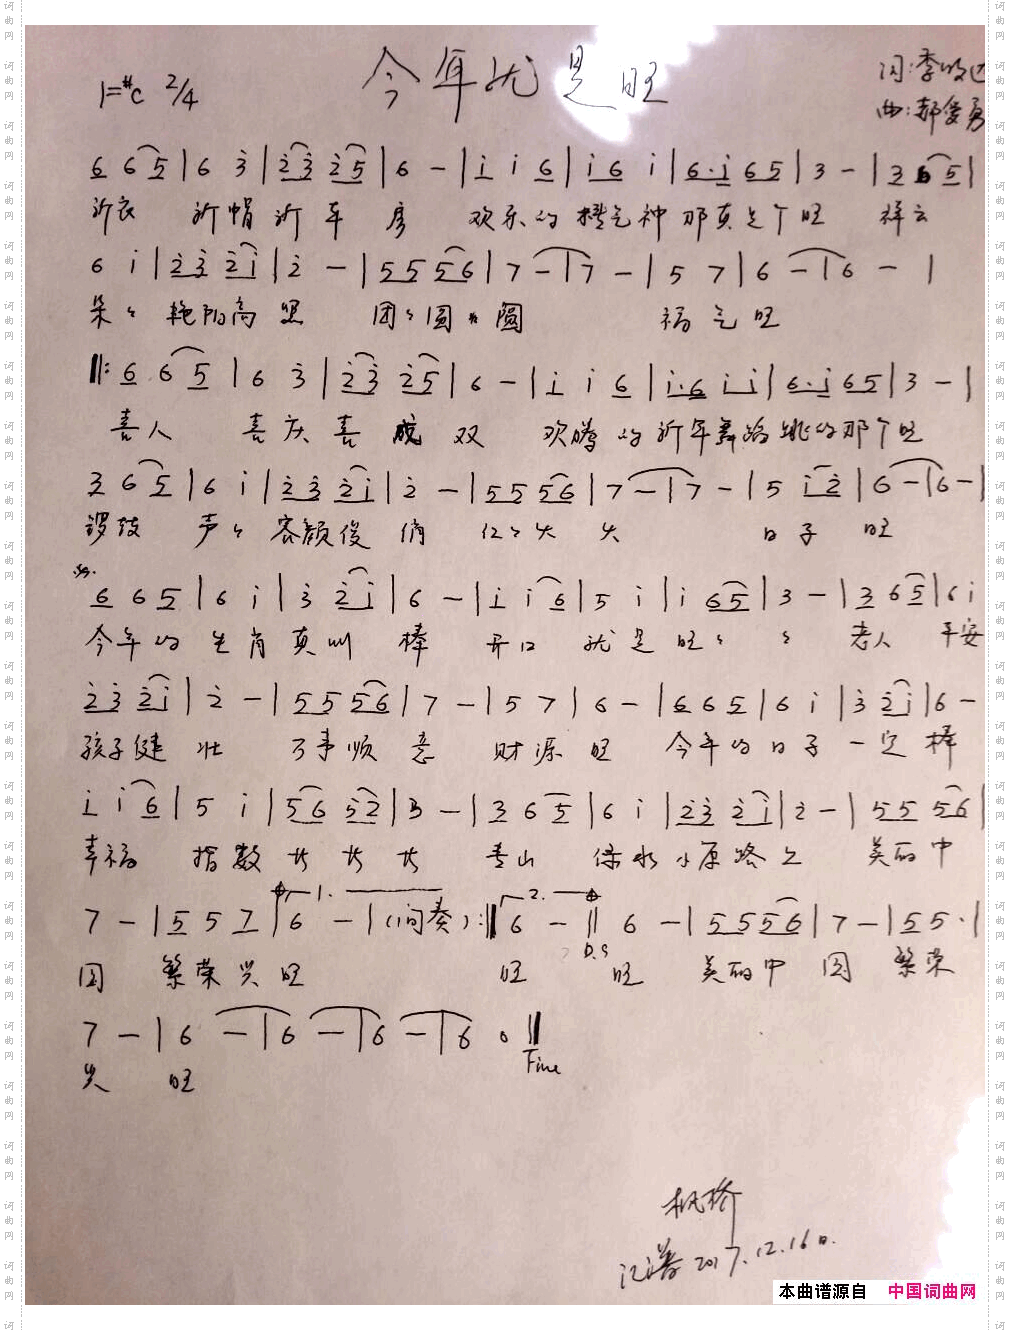 今年就是旺
1=#C 2/4
词:李
曲:郝俊勇
6 6 5 | 6 3 | 2 3 2 5 | 6 - | i i 6 | i 6 i | 6· i 6 5 | 3 - | 3 6 5 |
新衣 新帽 新车 房 欢乐的 精气神 那真是个旺 祥云
6 i | 2 3 2 i | 2 - | 5 5 5 6 | 7 - | 7 - | 5 7 | 6 - | 6 - |
朵々 艳阳高照 团々圆々圆 福气旺
‖: 6 6 5 | 6 3 | 2 3 2 5 | 6 - | i i 6 | i· 6 i i | 6· i 6 5 | 3 - |
喜人 喜庆喜成双 欢腾的新年舞蹈跳的那个旺
3 6 5 | 6 i | 2 3 2 i | 2 - | 5 5 5 6 | 7 - | 7 - | 5 i 2 | 6 - | 6 - |
锣鼓 声々 容颜俊俏 红々火火 日子 旺
6 6 5 | 6 i | 3 2 i | 6 - | i i 6 | 5 i | i 6 5 | 3 - | 3 6 5 | 6 i
今年的 生肖真叫 棒 开口 就是旺々 々 老人 平安
2 3 2 i | 2 - | 5 5 5 6 | 7 - | 5 7 | 6 - | 6 6 5 | 6 i | 3 2 i | 6 -
孩子健壮 万事顺意 财源旺 今年的日子一定棒
i i 6 | 5 i | 5 6 5 2 | 3 - | 3 6 5 | 6 i | 2 3 2 i | 2 - | 5 5 5 6 |
幸福 指数 青山 绿水小康路上 美丽中
7 - | 5 5 7 | 6 - | (间奏) :‖ 6 - ‖ 6 - | 5 5 5 6 | 7 - | 5 5 · |
1. 2. D.S
国 繁荣兴旺 旺 旺 美丽中国 繁荣
7 - | 6 - | 6 - | 6 - | 6 0 ‖
Fine
兴 旺
枫桥
记谱 2017.12.16日.
本曲谱源自 中国词曲网
词曲网